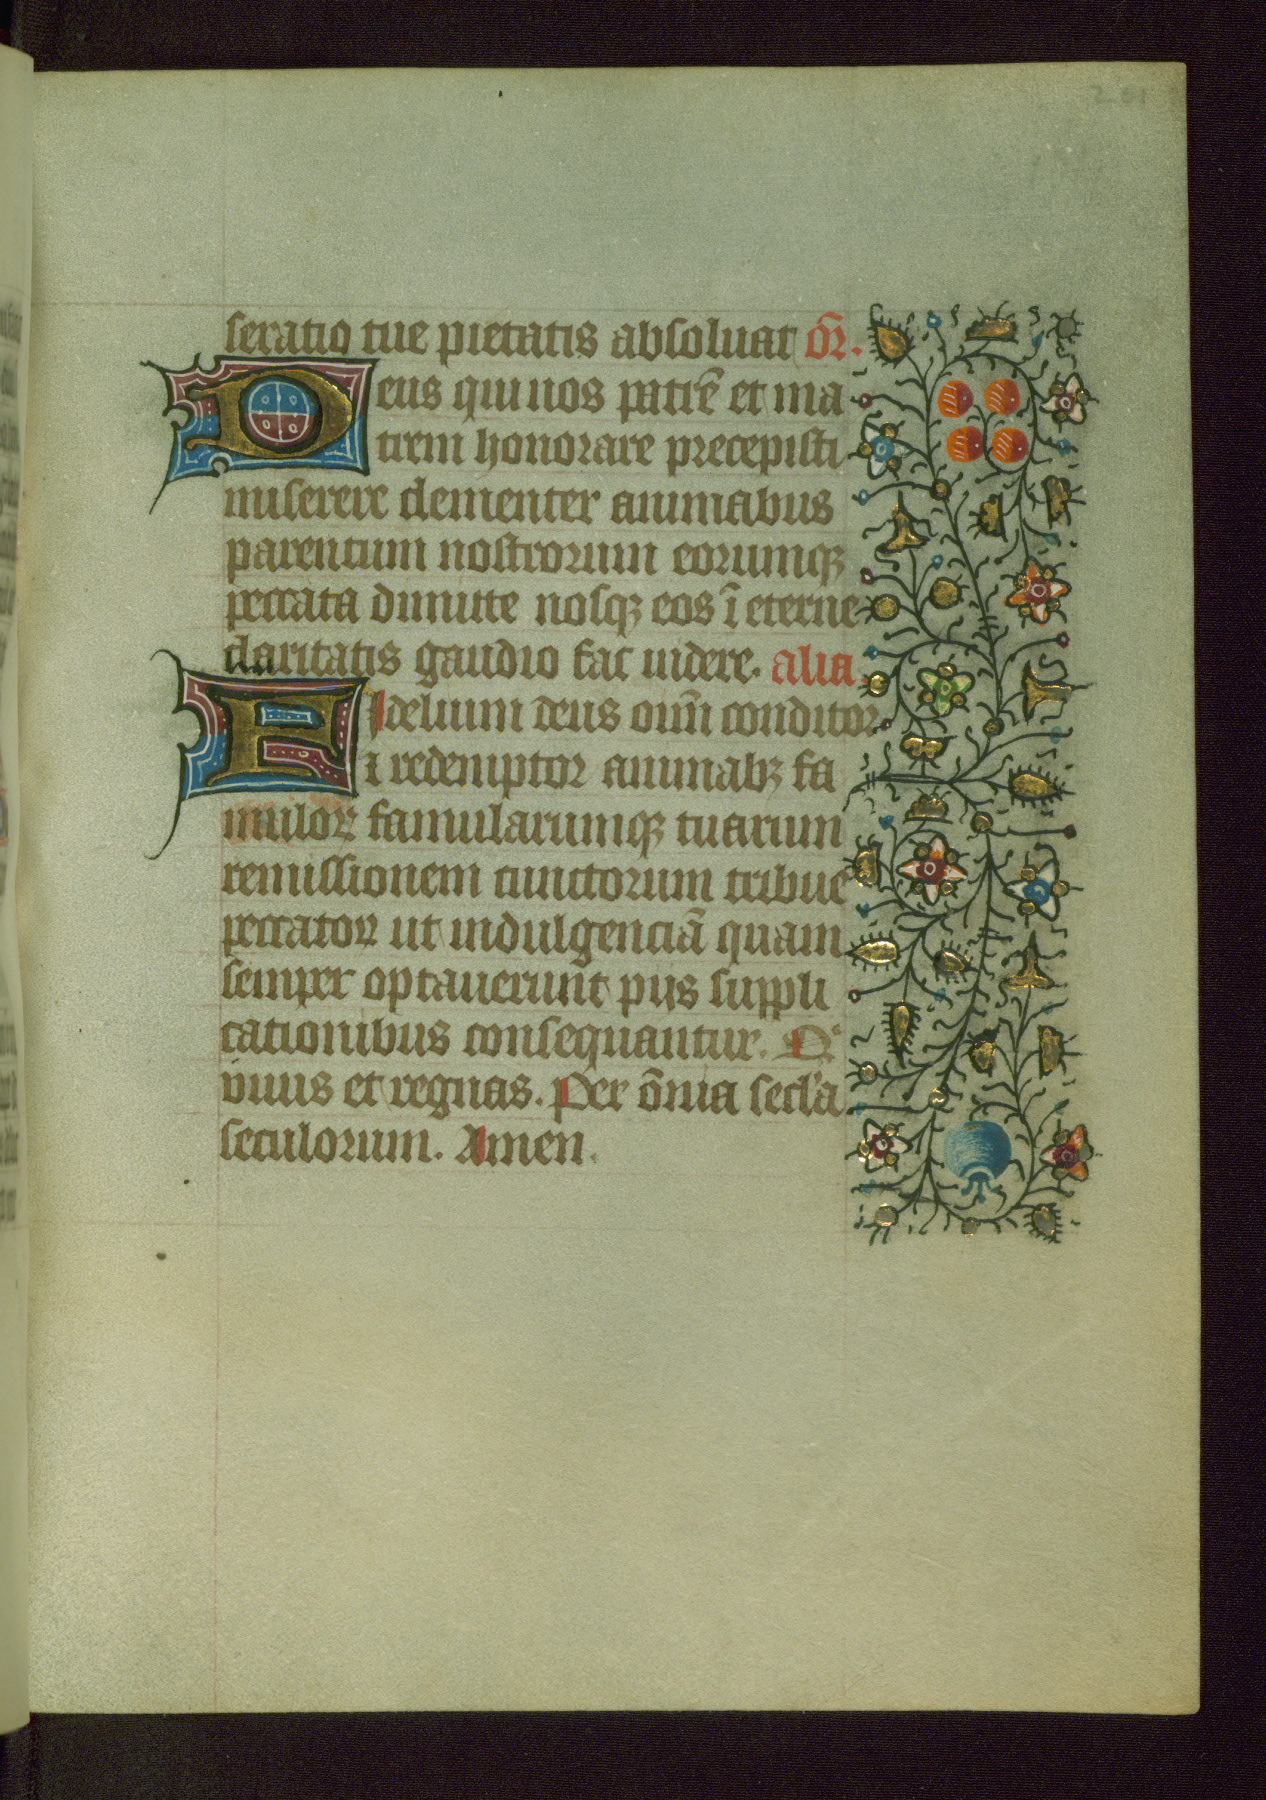 seratio tue pietatis absoluat or̃.
Deus qui nos patrē et ma
trem honorare precepisti
miserere clementer animabus
parentum nostrorum eorumqꝫ
peccata dimitte nosqꝫ eos ī eterne
claritatis gaudio fac uidere. alia.
Fidelium deus oim̄ conditor
⁊ redemptor animabꝫ fa
muloꝝ famularumqꝫ tuarum
remissionem cunctorum tribue
peccatoꝝ ut indulgenciā quam
semper optauerunt pijs suppli
cationibus consequantur. Q'
viuis et regnas. Per ōnia secl'a
seculorum. Amen.